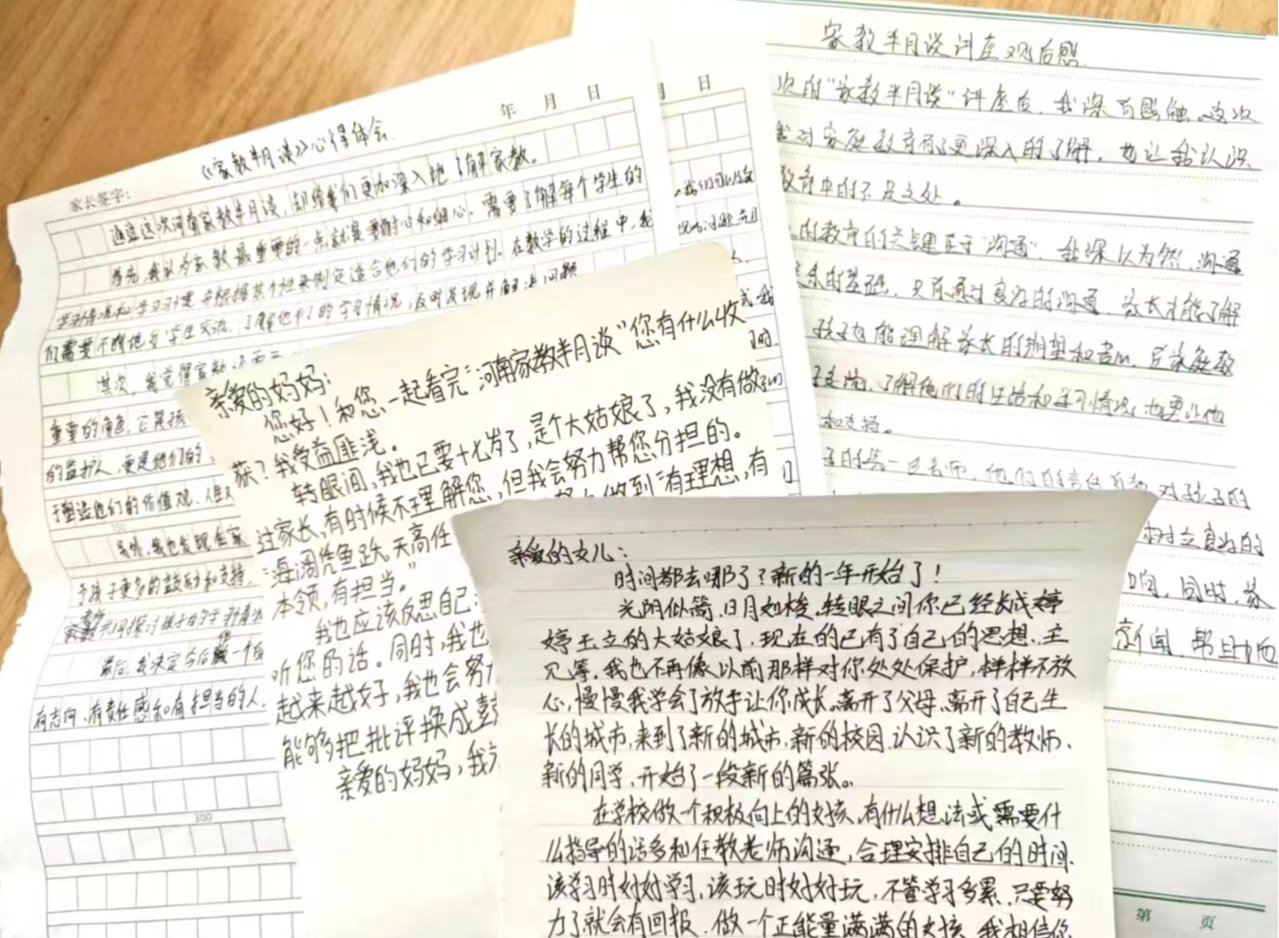 年 月 日
家长签字:
《家教半月谈》心得体会.
通过这次河南家教半月谈,却给我们更加深入地了解家教。
首先,我认为家教最重要的一点就是要耐心和细心。需要了解每个学生的
学习情况和学习习惯,并根据其个性来制定适合他们的学习计划。在教学的过程中,我
们需要不断地与学生交流,了解他们的学习情况,及时发现并解决问题
其次,我觉得家教
重要的角色。它是孩
的监护人,更是他们的
于塑造他们的价值观、人生
另外,我也发现在家
于孩子更多的鼓励和支持,
家教共同探讨孩子的学习情况
最后,我决定今后做一个有
有志向、有责任感和有担当的人.
300
月 日
家教半月谈讲座观后感.
次的“家教半月谈”讲座后,我深有感触。这次
我对家庭教育有了更深入的了解,也让我认识
教育中的不足之处。
的教育的关键在于“沟通”,我深以为然,沟通
关系的基础,只有通过良好的沟通,家长才能了解
孩子也能理解家长的期望和苦心,在家庭教
了解他们的生活和学习情况,也要让他
和支持。
子的第一任老师,他们的言传身教对孩子的
树立良好的
响,同时,家
第 页
亲爱的妈妈:
您好!和您一起看完“河南家教半月谈”您有什么收
获?我受益匪浅。
转眼间,我也已要十七岁了,是个大姑娘了,我没有做
过家长,有时候不理解您,但我会努力帮您分担的。
“海阔凭鱼跃,天高任
做到“有理想,有
本领,有担当。”
我也应该反思自己
听您的话。同时,我也
越来越好,我也会努
能够把批评换成鼓
亲爱的妈妈,我
亲爱的女儿:
时间都去哪了?新的一年开始了!
光阴似箭,日月如梭,转眼之间你已经长成婷
婷玉立的大姑娘了,现在的已有了自己的思想、主
见等,我也不再像以前那样对你处处保护,样样不放
心,慢慢我学会了放手让你成长。离开了父母,离开了自己生
长的城市,来到了新的城市,新的校园,认识了新的教师、
新的同学,开始了一段新的篇张。
在学校做一个积极向上的女孩,有什么想法或需要什
么指导的话多和任教老师沟通,合理安排自己的时间.
该学习时好好学习,该玩时好好玩,不管学习多累,只要努
力了就会有回报,做一个正能量满满的女孩,我相信你